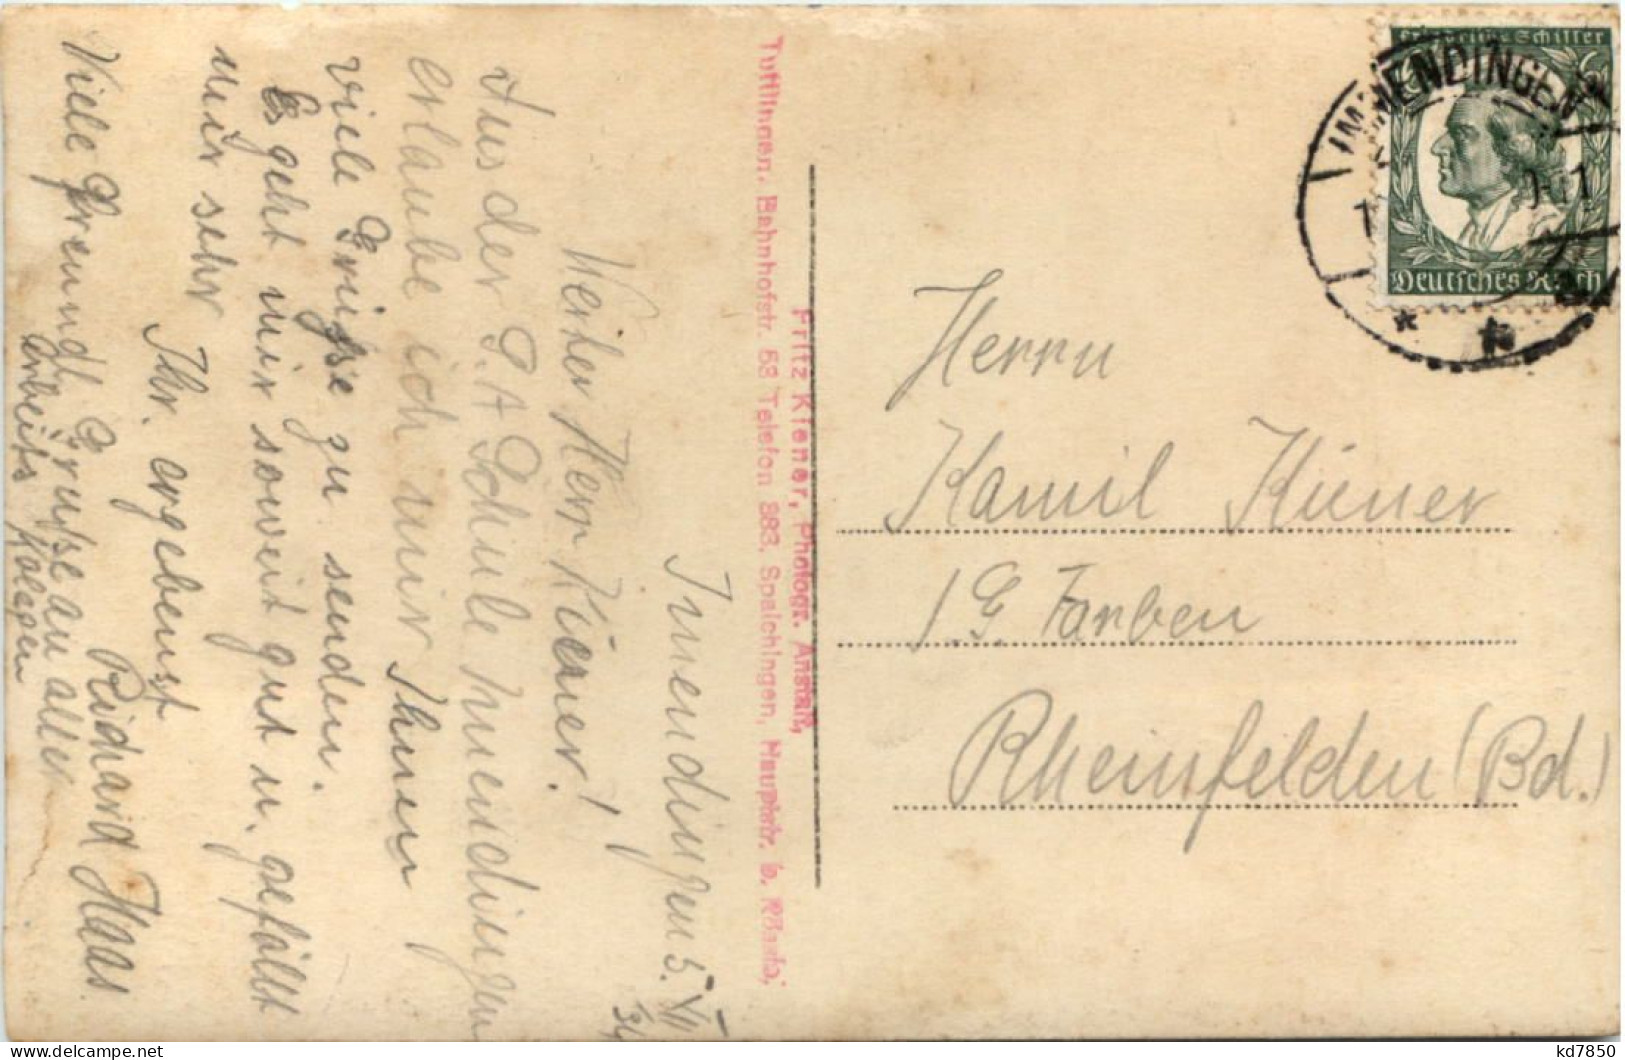 Immendingen 5. VII
34
Werter Herr Kiener!
Aus der S.A Schule Immendingen
erlaube ich mir Ihnen
viele Grüsse zu senden.
Es geht mir soweit gut u. gefällt
mir sehr
Ihr. ergebenst
Richard Haas
Viele Freundl. Grüsse an aller
Arbeits Kolegen
Fritz Kiener, Photogr. Anstalt,
Tuttlingen, Bahnhofstr. 53 Telefon 383, Spaichingen, Hauptstr. b. Rössle,
Friedrich Schiller
Deutsches Reich
IMMENDINGEN
Herrn
Kamil Kiener
I. G. Farben
Rheinfelden (Bd.)
kd7850